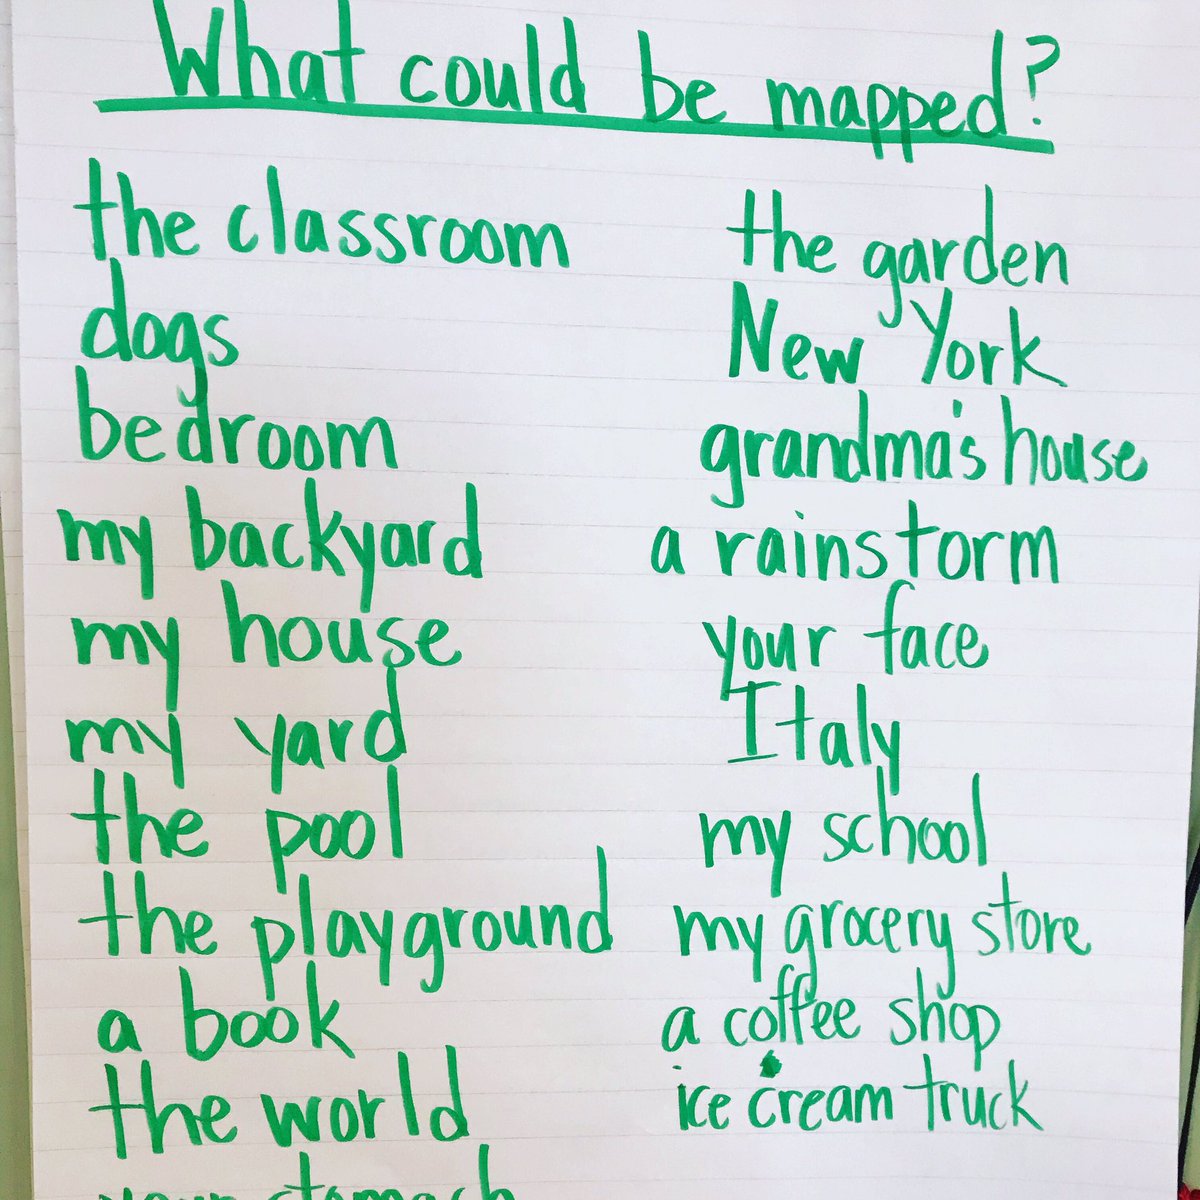 What could be mapped?
the classroom
dogs
bedroom
my backyard
my house
my yard
the pool
the playground
a book
the world
your stomach
the garden
New York
grandma's house
a rainstorm
your face
Italy
my school
my grocery store
a coffee shop
ice cream truck